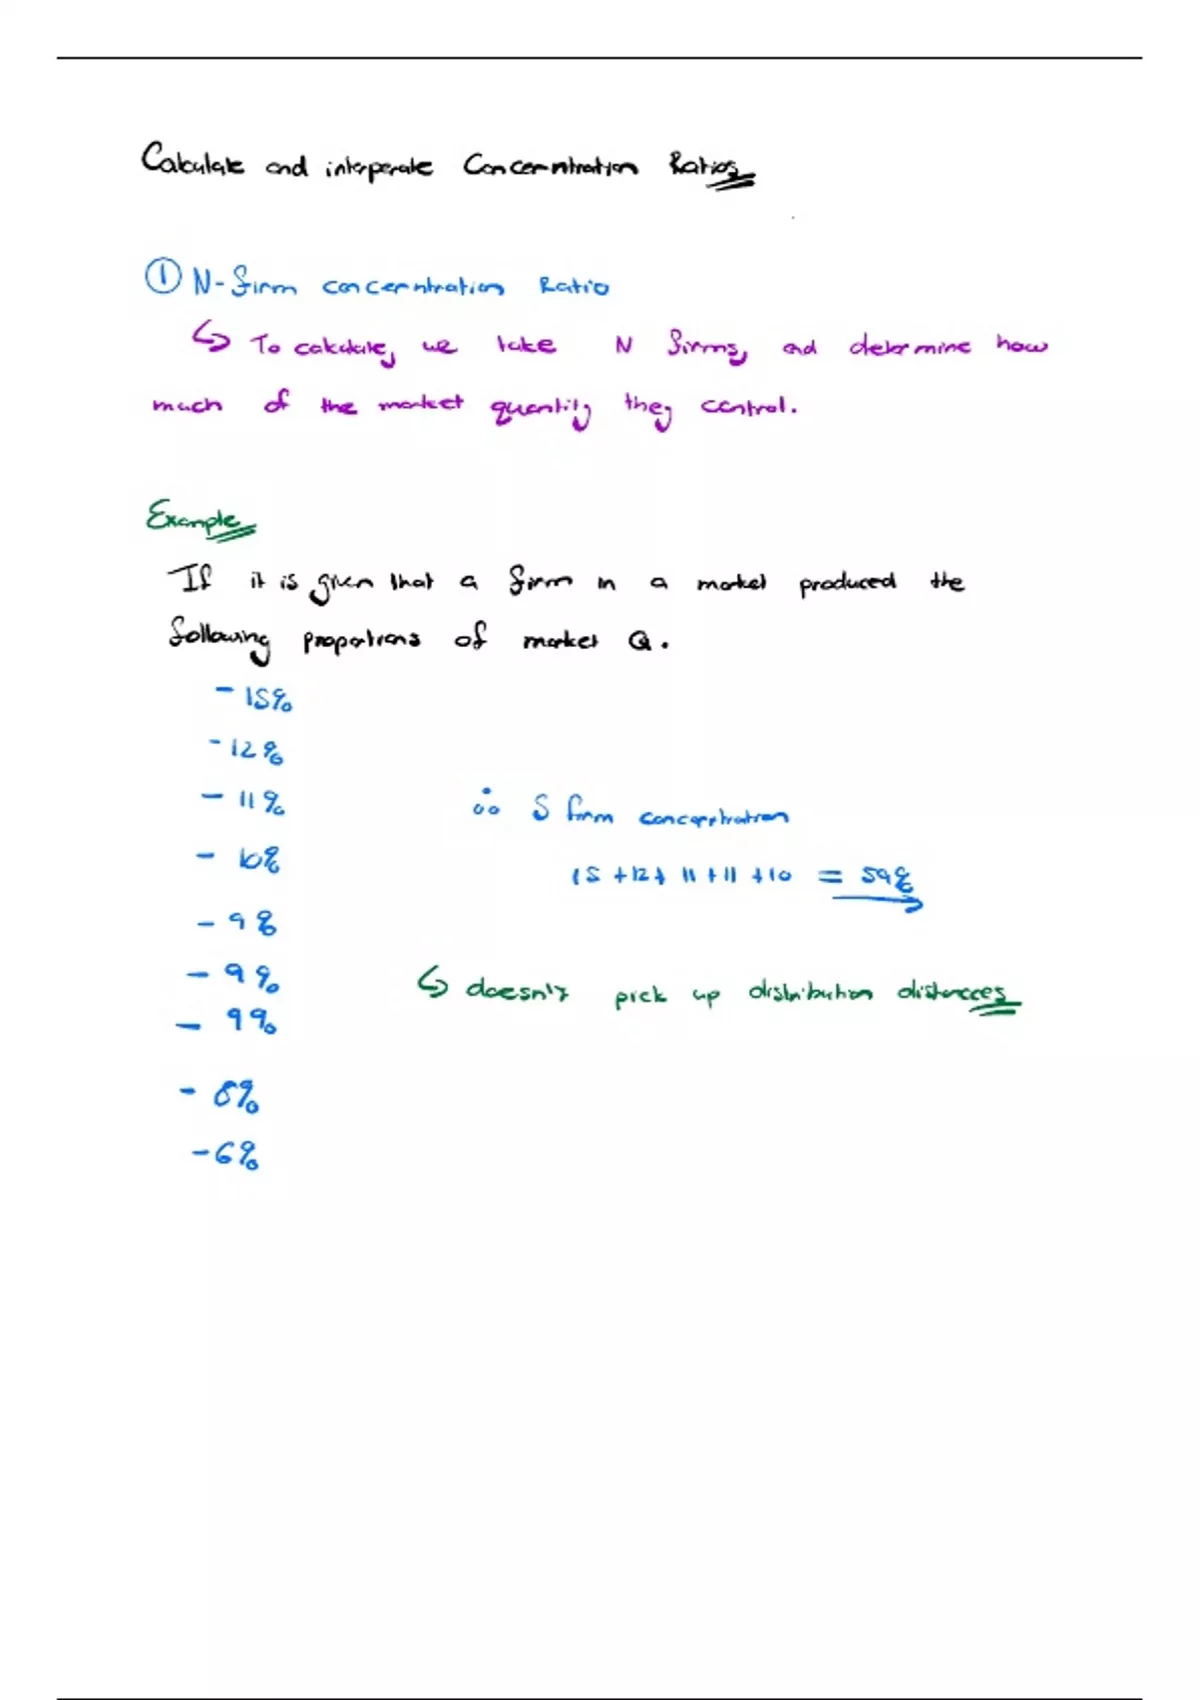 Calculate and interperate Concerntration Ratios
① N-firm concerntration Ratio
↳ To calculate, we take N firms, and determine how
much of the market quantity they control.
Example
If it is given that a firm in a market produced the
following proportions of market Q.
- 15%
- 12%
- 11%
- 10%
- 9%
- 9%
- 9%
- 8%
- 6%
∴ 5 firm concerntration
15 + 12 + 11 + 11 + 10 = 59%
↳ doesn't pick up distribution distances